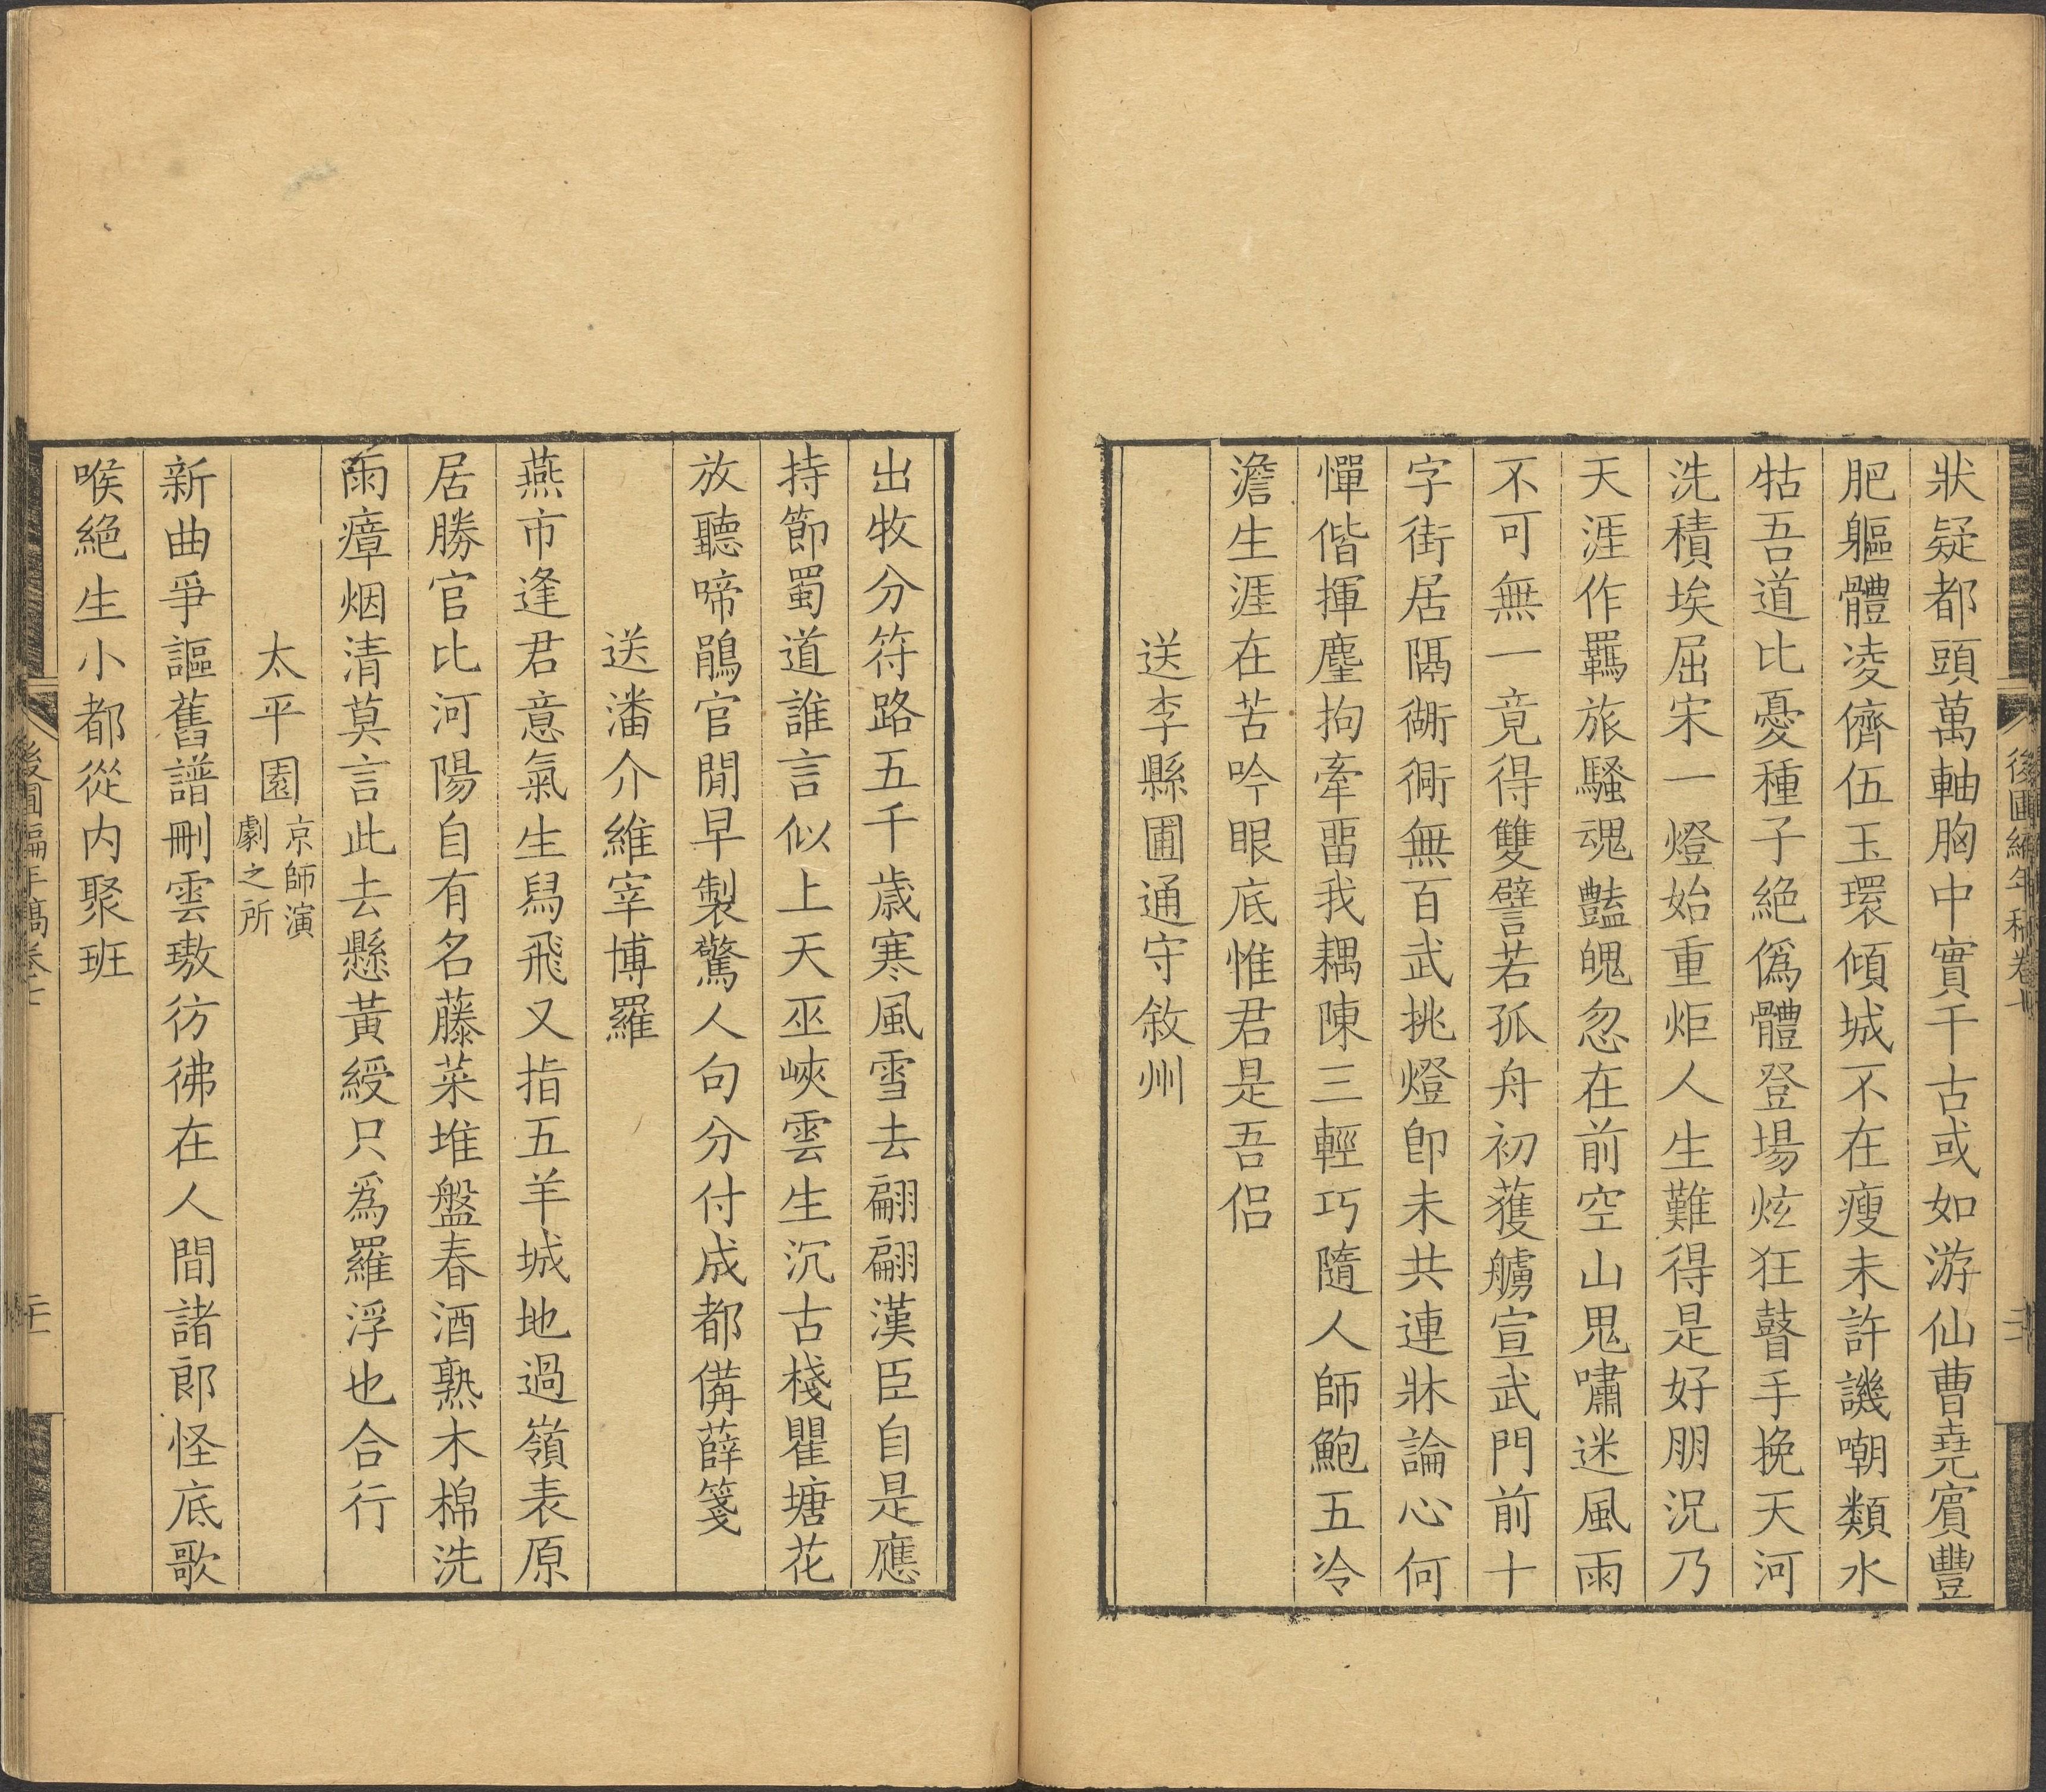 狀疑都頭萬軸胸中實千古或如游仙曹堯賔豐
肥軀體凌儕伍玉環傾城不在瘦未許譏嘲類水
牯吾道比憂種子絶僞體登場炫狂瞽手挽天河
洗積埃屈宋一燈始重炬人生難得是好朋況乃
天涯作羈旅騷魂豔魄忽在前空山鬼嘯迷風雨
不可無一竟得雙譬若孤舟初獲艣宣武門前十
字街居隔衚衕無百武挑燈卽未共連牀論心何
憚偕揮麈拘牽畱我耦陳三輕巧隨人師鮑五冷
澹生涯在苦吟眼底惟君是吾侣
送李縣圃通守敘州
出牧分符路五千歲寒風雪去翩翩漢臣自是應
持節蜀道誰言似上天巫峽雲生沉古棧瞿塘花
放聽啼鵑官閒早製驚人句分付成都備薛箋
送潘介維宰博羅
燕市逢君意氣生舄飛又指五羊城地過嶺表原
居勝官比河陽自有名藤菜堆盤春酒熟木棉洗
雨瘴烟清莫言此去懸黃綬只爲羅浮也合行
太平園京師演劇之所
新曲爭謳舊譜刪雲璈彷彿在人間諸郎怪底歌
喉絶生小都從内聚班
後圃編年稿卷十
後圃編年稿卷十